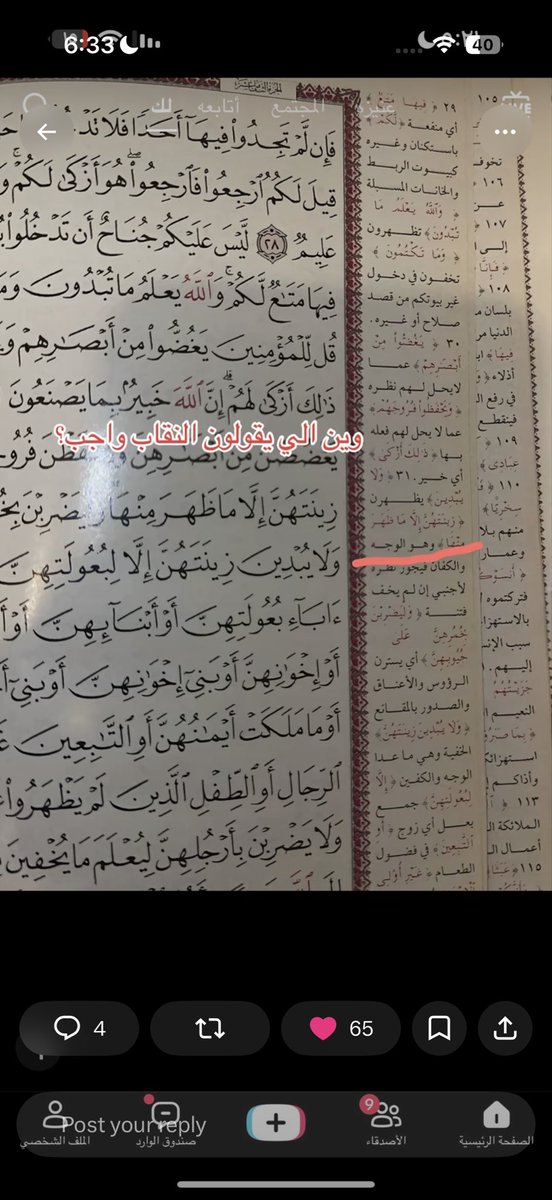 6:33
40
عنيزة المجتمع أتابعه لك
فَإِن لَّمْ تَجِدُوا۟ فِيهَآ أَحَدًا فَلَا
قِيلَ لَكُمُ ٱرْجِعُوا۟ فَٱرْجِعُوا۟ هُوَ أَزْكَىٰ لَكُمْ
عَلِيمٌ ﴿٢٨﴾ لَّيْسَ عَلَيْكُمْ جُنَاحٌ أَن تَدْخُلُوا۟
فِيهَا مَتَٰعٌ لَّكُمْ وَٱللَّهُ يَعْلَمُ مَا تُبْدُونَ
قُل لِّلْمُؤْمِنِينَ يَغُضُّوا۟ مِنْ أَبْصَٰرِهِمْ
ذَٰلِكَ أَزْكَىٰ لَهُمْ إِنَّ ٱللَّهَ خَبِيرٌۢ بِمَا يَصْنَعُونَ
وين الي يقولون النقاب واجب؟
يَغْضُضْنَ مِنْ أَبْصَٰرِهِنَّ
زِينَتَهُنَّ إِلَّا مَا ظَهَرَ مِنْهَا وَلْيَضْرِبْنَ
وَلَا يُبْدِينَ زِينَتَهُنَّ إِلَّا لِبُعُولَتِهِنَّ
ءَابَآءِ بُعُولَتِهِنَّ أَوْ أَبْنَآئِهِنَّ
أَوْ إِخْوَٰنِهِنَّ أَوْ بَنِىٓ إِخْوَٰنِهِنَّ أَوْ بَنِىٓ
أَوْ مَا مَلَكَتْ أَيْمَٰنُهُنَّ أَوِ ٱلتَّٰبِعِينَ
ٱلرِّجَالِ أَوِ ٱلطِّفْلِ ٱلَّذِينَ لَمْ يَظْهَرُوا۟
وَلَا يَضْرِبْنَ بِأَرْجُلِهِنَّ لِيُعْلَمَ مَا يُخْفِينَ
٢٩ ﴿فِيهَا مَتَٰعٌ
لَّكُمْ﴾ أي منفعة
باستكنان وغيره
كبيوت الربط
والخانات المسبلة
﴿وَٱللَّهُ يَعْلَمُ مَا
تُبْدُونَ﴾ تظهرون
﴿وَمَا تَكْتُمُونَ﴾
تخفون في دخول
غير بيوتكم من قصد
صلاح أو غيره.
٣٠ ﴿يَغُضُّوا۟ مِنْ
أَبْصَٰرِهِمْ﴾ عما
لا يحل لهم نظره
﴿وَيَحْفَظُوا۟ فُرُوجَهُمْ﴾
عما لا يحل لهم فعله
بها ﴿ذَٰلِكَ أَزْكَىٰ﴾
أي خير. ٣١ ﴿وَلَا
يُبْدِينَ﴾ يظهرن
﴿زِينَتَهُنَّ إِلَّا مَا ظَهَرَ
مِنْهَا﴾ وهو الوجه
والكفان فيجوز نظره
لأجنبي إن لم يخف
فتنة ﴿وَلْيَضْرِبْنَ
بِخُمُرِهِنَّ عَلَىٰ
جُيُوبِهِنَّ﴾ أي يسترن
الرؤوس والأعناق
والصدور بالمقانع
﴿وَلَا يُبْدِينَ زِينَتَهُنَّ﴾
الخفية وهي ما عدا
الوجه والكفين ﴿إِلَّا
لِبُعُولَتِهِنَّ﴾ جمع
بعل أي زوج ﴿أَوِ
ٱلتَّٰبِعِينَ﴾ في فضول
الطعام ﴿غَيْرِ أُو۟لِى
١٠٥
١٠٦
١٠٧
١٠٨
بلسان
الدنيا
في رفع
فينقطع
١٠٩
عِبَادِى
١١٠
سِخْرِيًّا
منهم
فتركتموه
بالاستهزاء
سبب
إليهم.
النعيم
استهزائكم
وأذاكم
١١٣
الملائكة
أعمال
١١٥
4
65
Post your reply
9
الصفحة الرئيسية
الأصدقاء
صندوق الوارد
الملف الشخصي